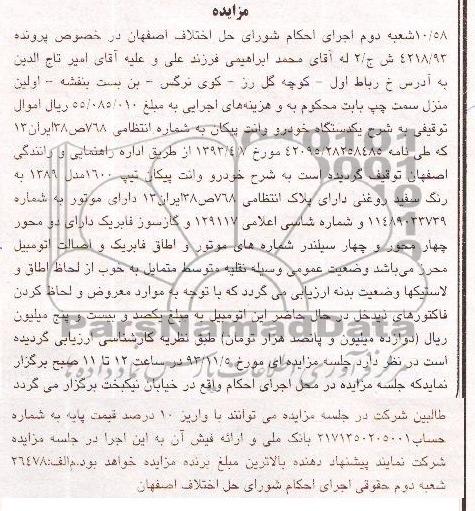 مزایده
۱۰/۵۸شعبه دوم اجرای احکام شورای حل اختلاف اصفهان در خصوص پرونده
۴۲۱۸/۹۳ ش ج/۲ له آقای محمد ابراهیمی فرزند علی و علیه آقای امیر تاج الدین
به آدرس خ رباط اول - کوچه گل رز - کوی نرگس - بن بست بنفشه - اولین
منزل سمت چپ بابت محکوم به و هزینه‌های اجرایی به مبلغ ۵۵/۰۸۵/۰۱۰ ریال اموال
توقیفی به شرح یکدستگاه خودرو وانت پیکان به شماره انتظامی ۷۶۸ص۳۸ایران۱۳
که طی نامه مورخ ۱۳۹۳/۴/۷ از طریق اداره راهنمایی و رانندگی
اصفهان توقیف گردیده است به شرح خودرو وانت پیکان تیپ ۱۶۰۰مدل ۱۳۸۹ به
رنگ سفید روغنی دارای پلاک انتظامی ۷۶۸ص۳۸ایران۱۳ دارای موتور به شماره
و شماره شاسی اعلامی ۱۲۹۱۱۷ و گازسوز فابریک دارای دو محور
چهار چرخ و چهار سیلندر شماره های موتور و اطاق فابریک و اصالت اتومبیل
محرز می‌باشد وضعیت عمومی وسیله نقلیه متوسط متمایل به خوب از لحاظ اطاق و
لاستیکها وضعیت بدنه ارزیابی می گردد که با توجه به موارد معروض و لحاظ کردن
فاکتورهای ذیدخل در حال حاضر این اتومبیل به مبلغ یکصد و بیست و پنج میلیون
ریال (دوازده میلیون و پانصد هزار تومان) طبق نظریه کارشناسی ارزیابی گردیده
است در نظر دارد جلسه مزایده ای مورخ ۹۳/۱۱/۵ در ساعت ۱۲ تا ۱۱ صبح برگزار
نمایدکه جلسه مزایده در محل اجرای احکام واقع در خیابان نیکبخت برگزار می گردد
طالبین شرکت در جلسه مزایده می توانند با واریز ۱۰ درصد قیمت پایه به شماره
حساب۲۱۷۱۳۵۰۲۰۵۰۰۱ بانک ملی و ارائه فیش آن به این اجرا در جلسه مزایده
شرکت نمایند پیشنهاد دهنده بالاترین مبلغ برنده مزایده خواهد بود.م‌الف:۲۶۴۷۸
شعبه دوم حقوقی اجرای احکام شورای حل اختلاف اصفهان